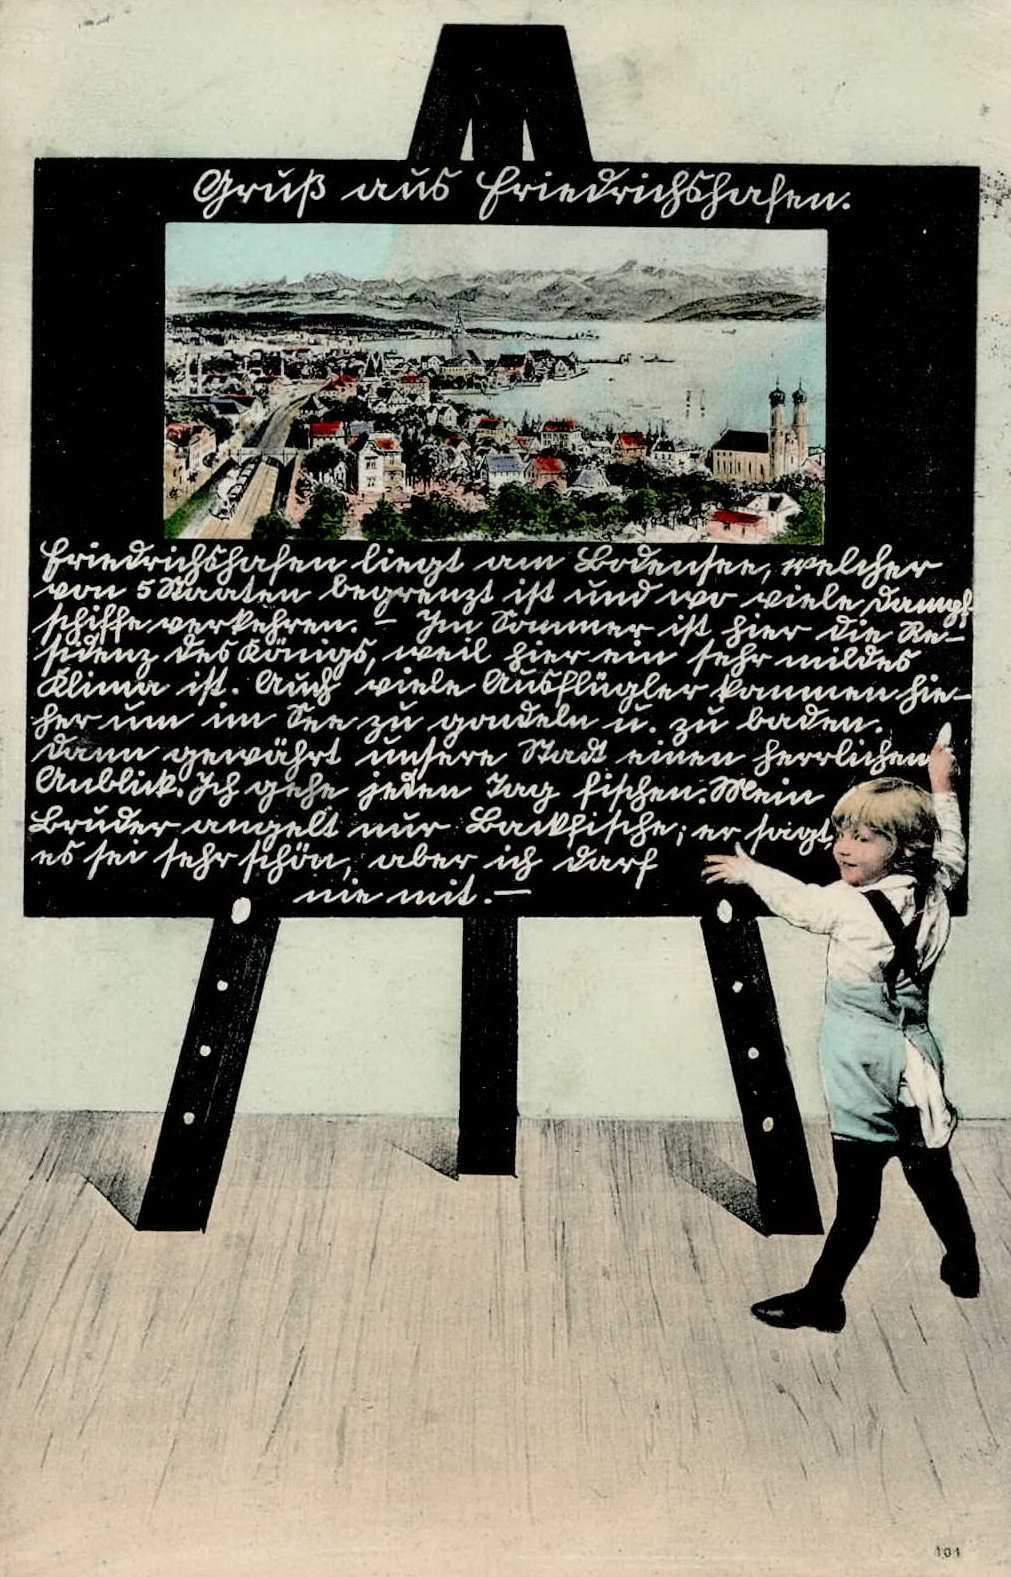 Gruß aus Friedrichshafen.
Friedrichshafen liegt am Bodensee, welcher
von 5 Staaten begrenzt ist und wo viele Dampf
schiffe verkehren. - Im Sommer ist hier die Re-
sidenz des Königs, weil hier ein sehr mildes
Klima ist. Auch viele Ausflügler kommen hie-
her um im See zu gondeln u. zu baden.
Dann gewährt unsere Stadt einen herrlichen
Anblick. Ich gehe jeden Tag fischen. Mein
Bruder angelt nur Backfische; er sagt,
es sei sehr schön, aber ich darf
nie mit. —
101